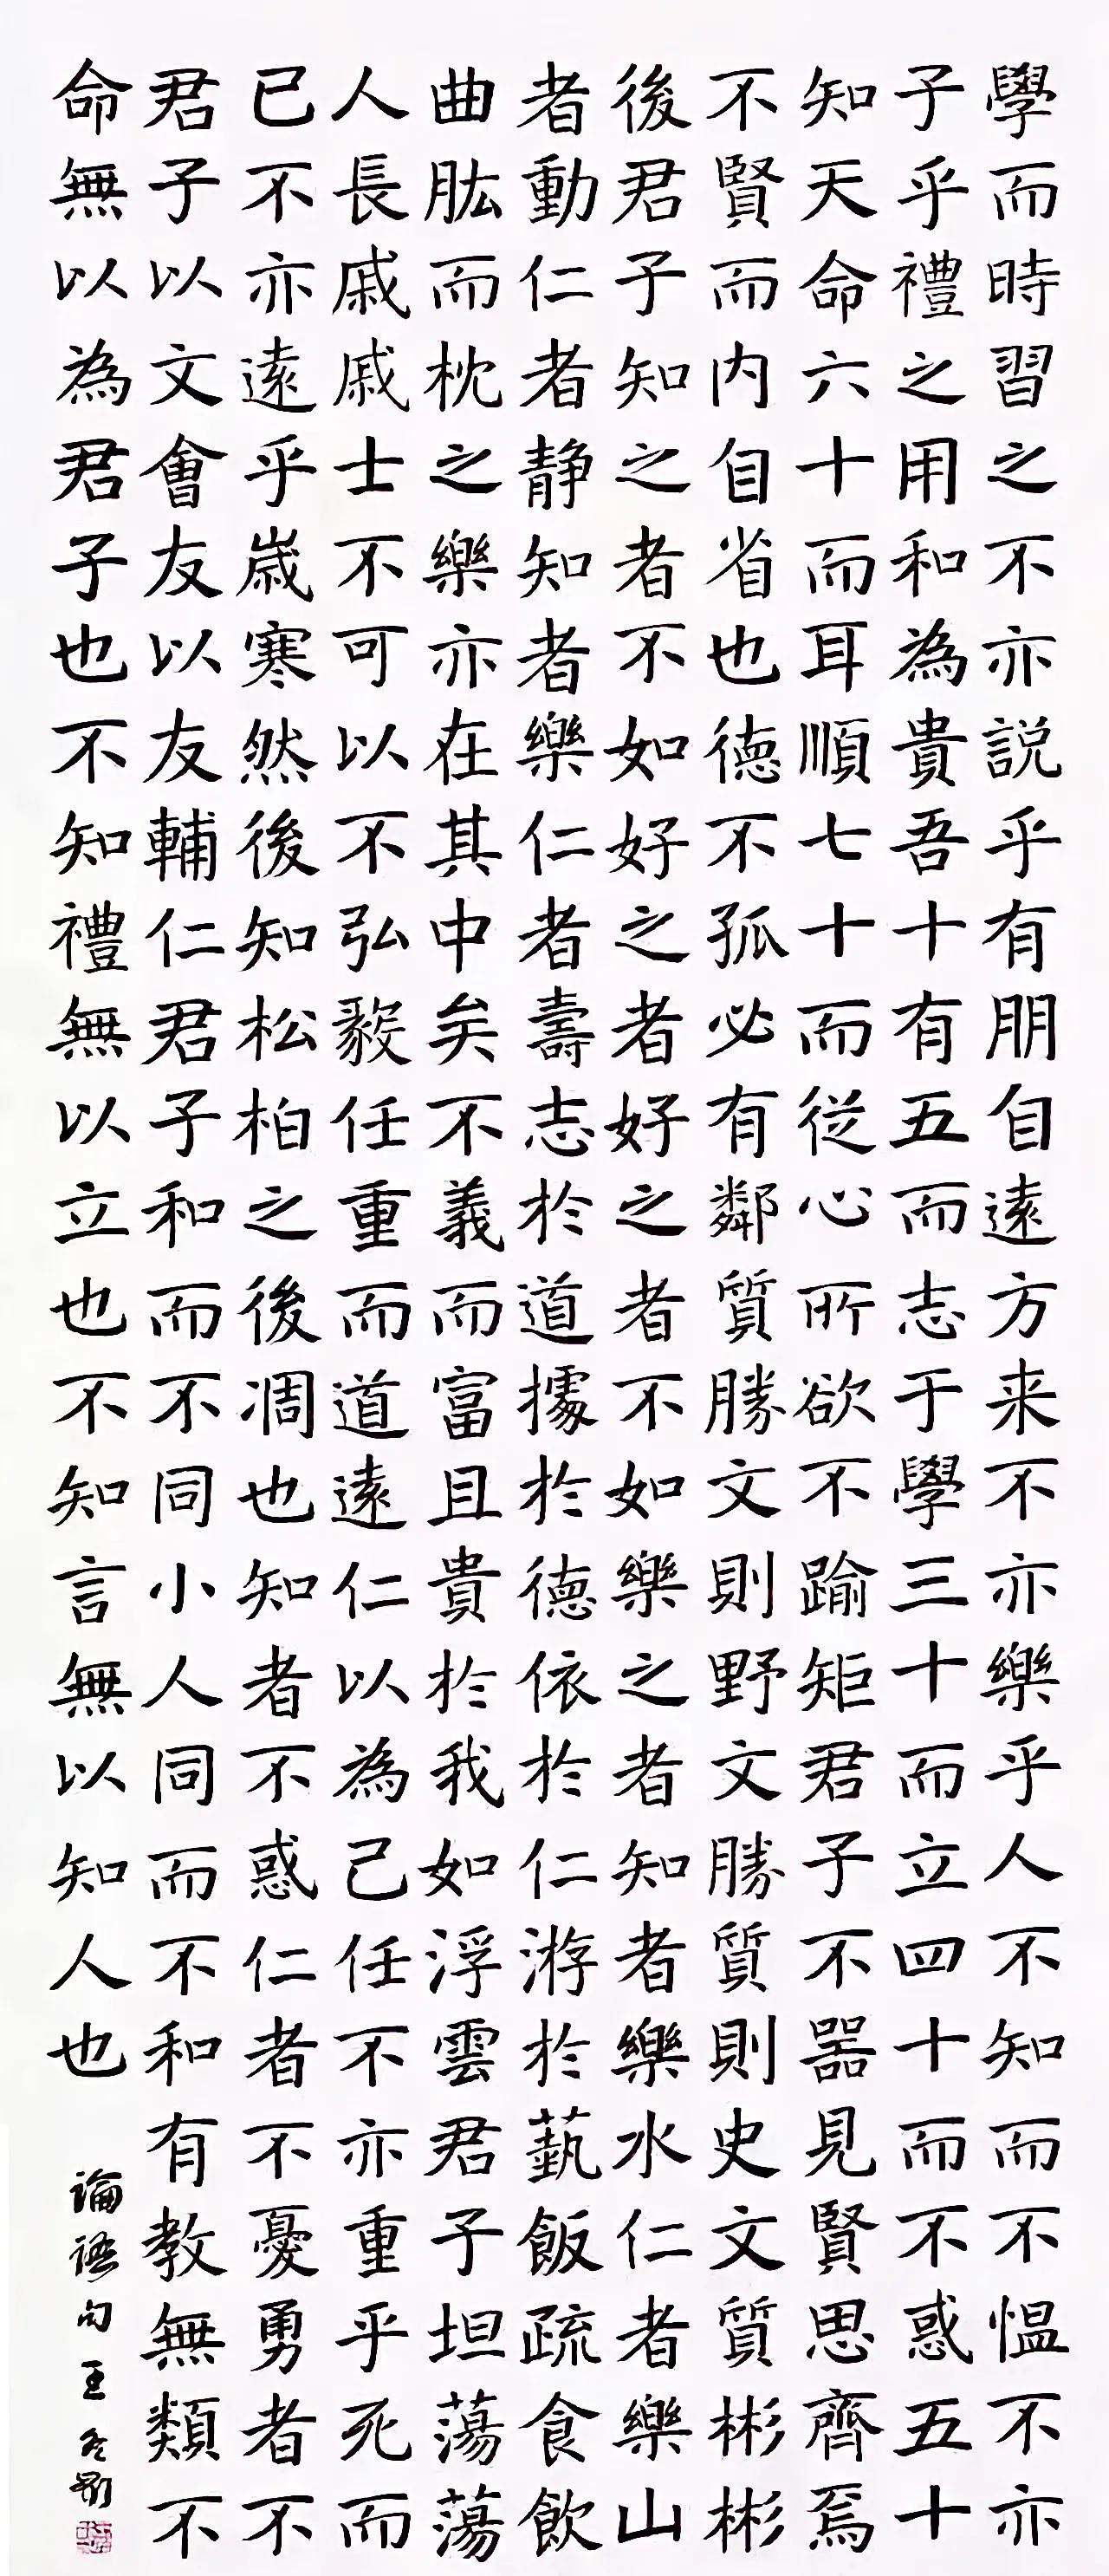 學而時習之不亦説乎有朋自遠方来不亦樂乎人不知而不愠不亦
子乎禮之用和為貴吾十有五而志于學三十而立四十而不惑五十
知天命六十而耳順七十而従心所欲不踰矩君子不器見賢思齊焉
不賢而内自省也徳不孤必有鄰質勝文則野文勝質則史文質彬彬
後君子知之者不如好之者好之者不如樂之者知者樂水仁者樂山
者動仁者静知者樂仁者壽志於道據於徳依於仁游於藝飯疏食飲
曲肱而枕之樂亦在其中矣不義而富且貴於我如浮雲君子坦蕩蕩
人長戚戚士不可以不弘毅任重而道遠仁以為己任不亦重乎死而
已不亦遠乎歲寒然後知松柏之後凋也知者不惑仁者不憂勇者不
君子以文會友以友輔仁君子和而不同小人同而不和有教無類不
命無以為君子也不知禮無以立也不知言無以知人也
論語句王